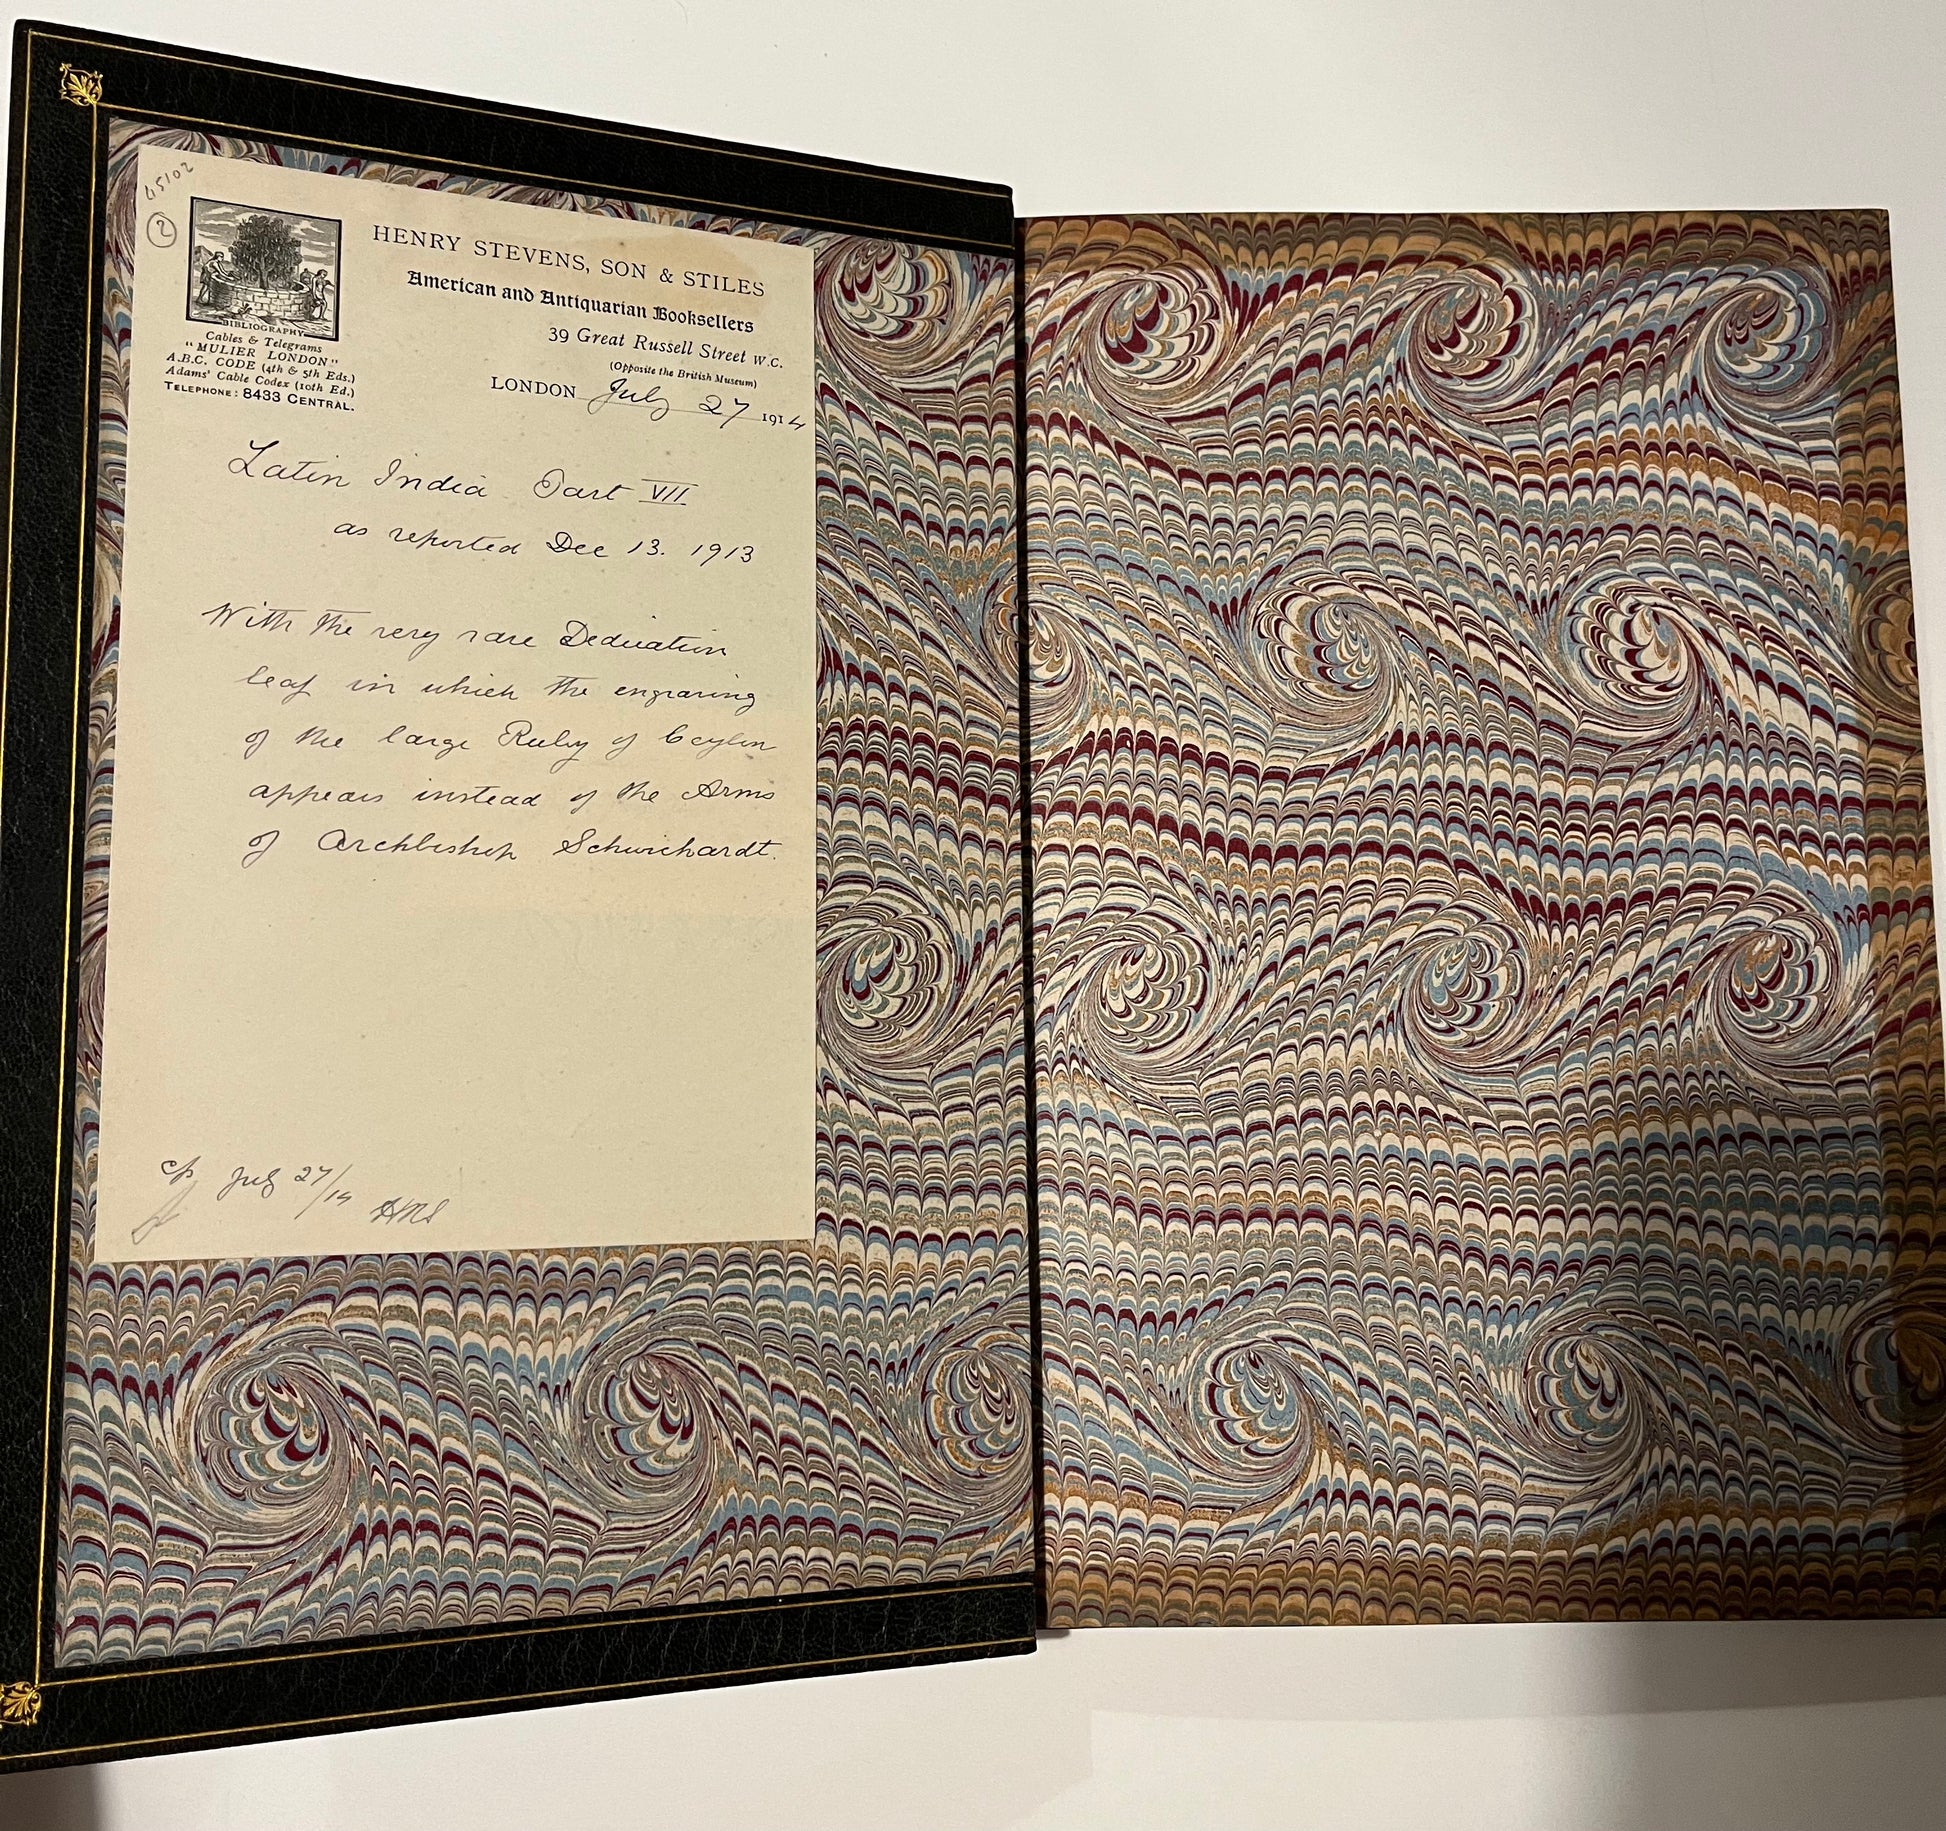 45102
2
BIBLIOGRAPHY
Cables & Telegrams
"MULIER LONDON"
A.B.C. CODE (4th & 5th Eds.)
Adams' Cable Codex (10th Ed.)
TELEPHONE: 8433 CENTRAL.
HENRY STEVENS, SON & STILES
American and Antiquarian Booksellers
39 Great Russell Street W.C.
(Opposite the British Museum)
LONDON July 27 1914
Latin India Part VII
as reported Dec 13. 1913
With the very rare Dedication
leaf in which the engraving
of the large Ruby of Ceylon
appears instead of the Arms
of Archbishop Schwichardt.
July 27/14 HNS